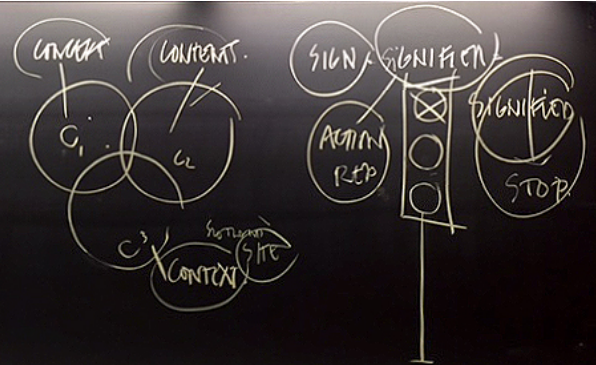 CONCEPT
CONTENT.
C1
C2
C3
CONTEXT
SITE
SIGN
SIGNIFIER
ACTION
RED
SIGNIFIED
STOP.